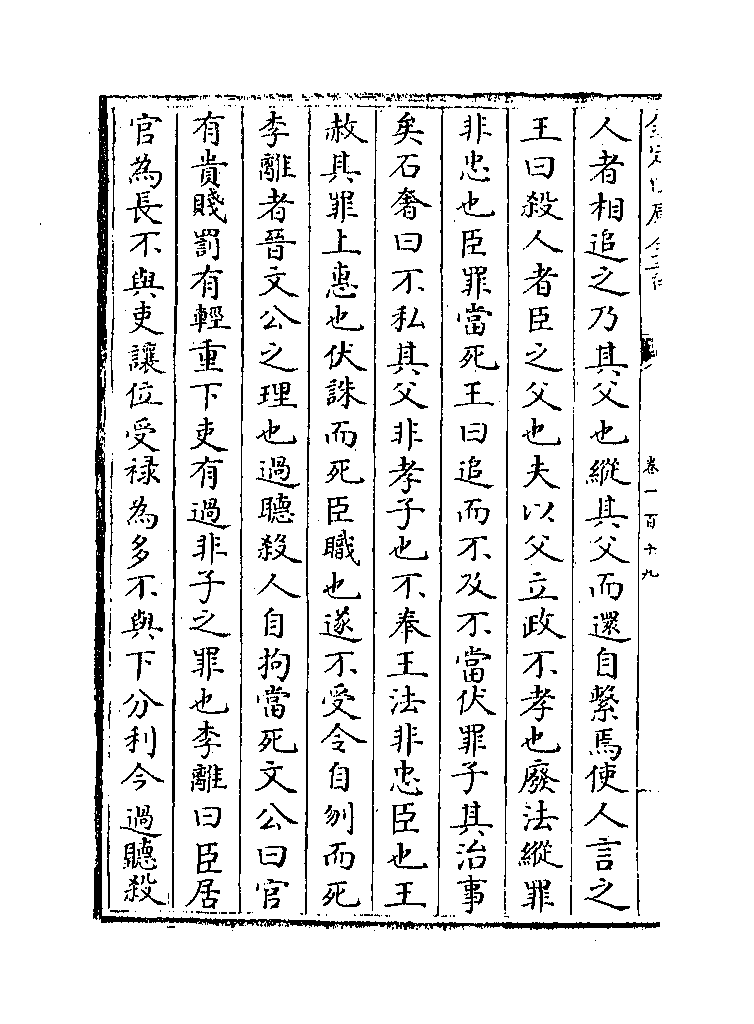 人者相追之乃其父也縱其父而還自繫焉使人言之
王曰殺人者臣之父也夫以父立政不孝也廢法縱罪
非忠也臣罪當死王曰追而不及不當伏罪子其治事
矣石奢曰不私其父非孝子也不奉王法非忠臣也王
赦其罪上恵也伏誅而死臣職也遂不受令自刎而死
李離者晉文公之理也過聽殺人自拘當死文公曰官
有貴賤罰有輕重下吏有過非子之罪也李離曰臣居
官為長不與吏讓位受祿為多不與下分利今過聽殺
卷一百十九